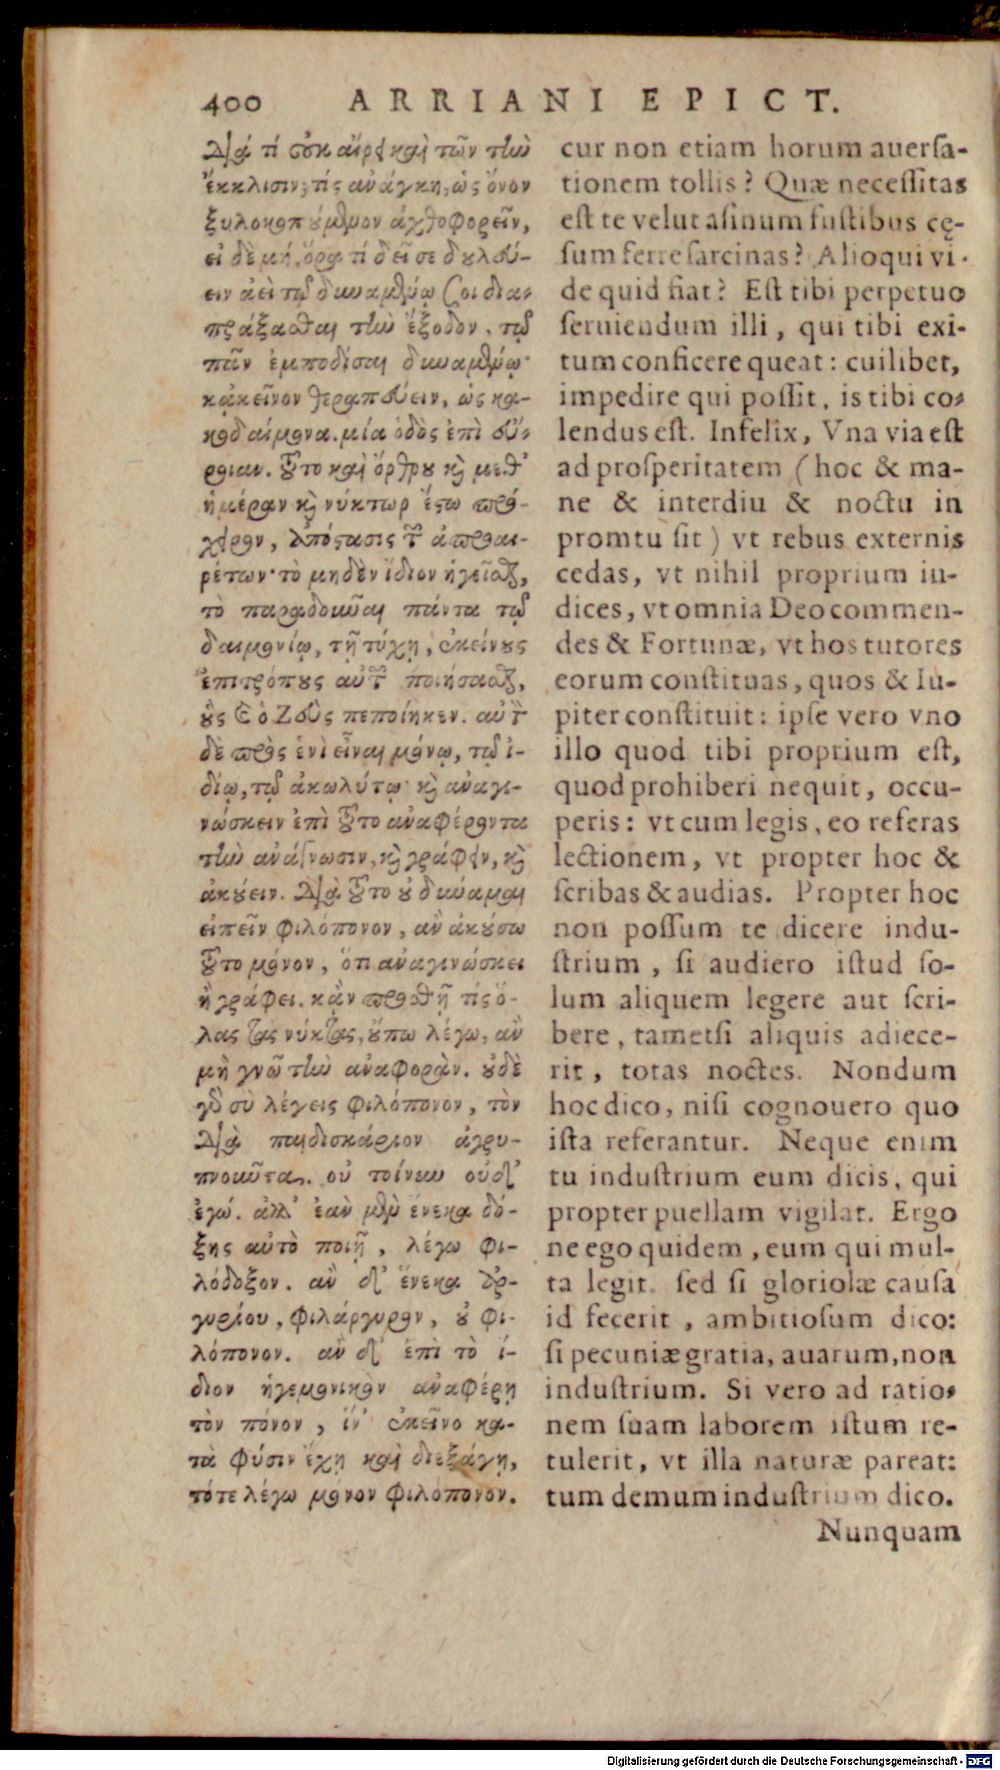 400 ARRIANI EPICT.
Διά τί οὐκ αἴρεις καὶ τῶν τὴν
ἔκκλισιν; τίς ἀνάγκη, ὡς ὄνον
ξυλοκοπούμενον ἀχθοφορεῖν,
εἰ δὲ μή, ὅρα τί δεῖ σε δουλεύ-
ειν ἀεὶ τῷ δυναμένῳ σοι δια-
πράξασθαι τὴν ἔξοδον, τῷ
πᾶν ἐμποδίσαι δυναμένῳ·
κἀκεῖνον θεραπεύειν, ὡς κα-
κοδαίμονα. μία ὁδὸς ἐπὶ εὔ-
ροιαν. τοῦτο καὶ ὄρθρου καὶ μεθ'
ἡμέραν καὶ νύκτωρ ἔστω πρό-
χειρον, ἀπόστασις τῶν ἀπροαι-
ρέτων· τὸ μηδὲν ἴδιον ἡγεῖσθαι,
τὸ παραδοῦναι πάντα τῷ
δαιμονίῳ, τῇ τύχῃ, ἐκείνους
ἐπιτρόπους αὐτῶν ποιήσασθαι,
οὓς καὶ ὁ Ζεὺς πεποίηκεν. αὐτὸν
δὲ πρὸς ἑνὶ εἶναι μόνῳ, τῷ ἰ-
δίῳ, τῷ ἀκωλύτῳ· καὶ ἀναγι-
νώσκειν ἐπὶ τοῦτο ἀναφέροντα
τὴν ἀνάγνωσιν, καὶ γράφειν, καὶ
ἀκούειν. Διὰ τοῦτο οὐ δύναμαι
εἰπεῖν φιλόπονον, ἂν ἀκούσω
τοῦτο μόνον, ὅτι ἀναγινώσκει
ἢ γράφει. κἂν προσθῇ τίς ὅ-
λας τὰς νύκτας, οὔπω λέγω, ἂν
μὴ γνῶ τὴν ἀναφοράν. οὐδὲ
γὰρ σὺ λέγεις φιλόπονον, τὸν
Διὰ παιδισκάριον ἀγρυ-
πνοῦντα. οὐ τοίνυν οὐδ'
ἐγώ. ἀλλ' ἐὰν μὲν ἕνεκα δό-
ξης αὐτὸ ποιῇ, λέγω φι-
λόδοξον. ἂν δ' ἕνεκα ἀρ-
γυρίου, φιλάργυρον, οὐ φι-
λόπονον. ἂν δ' ἐπὶ τὸ ἴ-
διον ἡγεμονικὸν ἀναφέρῃ
τὸν πόνον, ἵν' ἐκεῖνο κα-
τὰ φύσιν ἔχῃ καὶ διεξάγῃ,
τότε λέγω μόνον φιλόπονον.
cur non etiam horum auersa-
tionem tollis? Quæ necessitas
est te velut asinum fustibus cę-
sum ferre sarcinas? Alioqui vi-
de quid fiat? Est tibi perpetuo
seruiendum illi, qui tibi exi-
tum conficere queat: cuilibet,
impedire qui possit, is tibi co-
lendus est. Infelix, Vna via est
ad prosperitatem (hoc & ma-
ne & interdiu & noctu in
promtu sit) vt rebus externis
cedas, vt nihil proprium iu-
dices, vt omnia Deo commen-
des & Fortunæ, vt hos tutores
eorum constituas, quos & Iu-
piter constituit: ipse vero vno
illo quod tibi proprium est,
quod prohiberi nequit, occu-
peris: vt cum legis, eo referas
lectionem, vt propter hoc &
scribas & audias. Propter hoc
non possum te dicere indu-
strium, si audiero istud so-
lum aliquem legere aut scri-
bere, tametsi aliquis adiece-
rit, totas noctes. Nondum
hoc dico, nisi cognouero quo
ista referantur. Neque enim
tu industrium eum dicis, qui
propter puellam vigilat. Ergo
ne ego quidem, eum qui mul-
ta legit. sed si gloriolæ causa
id fecerit, ambitiosum dico:
si pecuniæ gratia, auarum, non
industrium. Si vero ad ratio-
nem suam laborem istum re-
tulerit, vt illa naturæ pareat:
tum demum industrium dico.
Nunquam
Digitalisierung gefördert durch die Deutsche Forschungsgemeinschaft - DFG